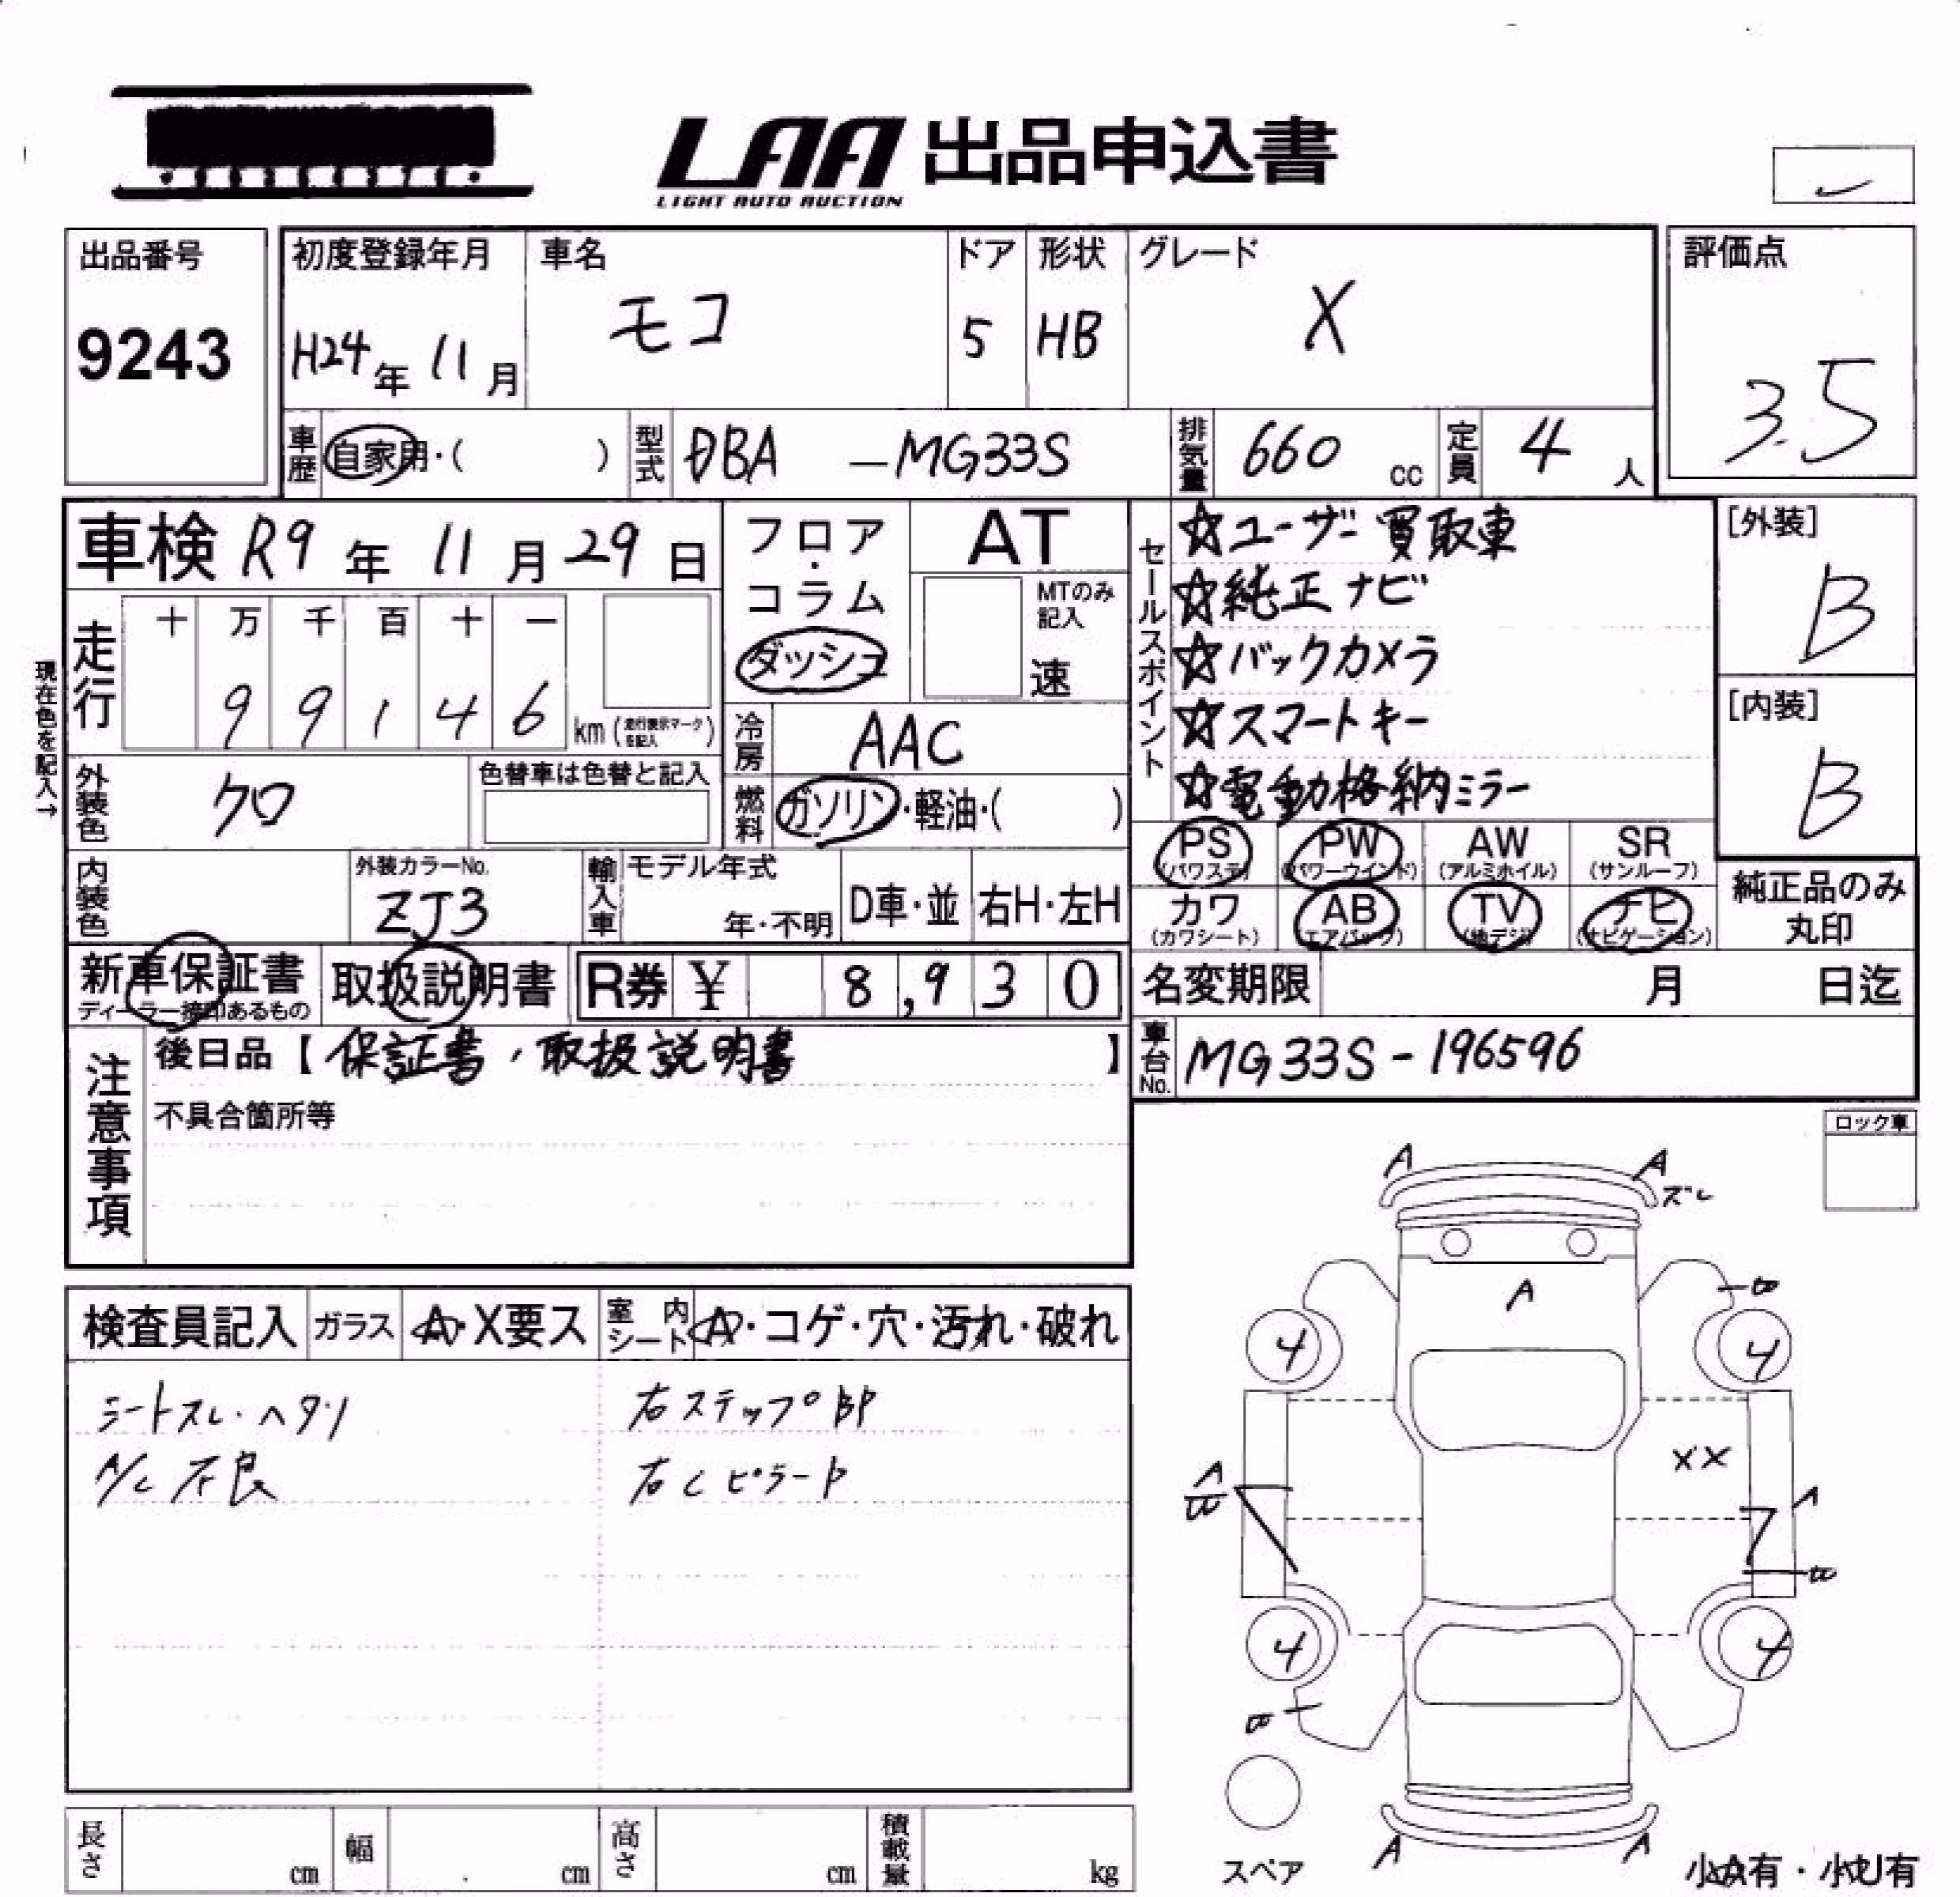 LAA 出品申込書
LIGHT AUTO AUCTION
出品番号
9243
初度登録年月
H24年 11月
車名
モコ
ドア
5
形状
HB
グレード
X
評価点
3.5
車歴 自家用・( )
型式 DBA -MG33S
排気量 660 cc
定員 4 人
車検 R9年 11月 29日
走行 十 万 千 百 十 一
9 9 1 4 6 km (走行表示マークを記入)
現在色を記入→
外装色 クロ
色替車は色替と記入
内装色
外装カラーNo.
ZJ3
フロア・コラム
ダッシュ
AT
MTのみ記入
速
冷房 AAC
燃料 ガソリン・軽油・( )
輸入車 モデル年式
年・不明
D車・並 右H・左H
セールスポイント
☆ユーザー買取車
☆純正ナビ
☆バックカメラ
☆スマートキー
☆電動格納ミラー
[外装]
B
[内装]
B
PS (パワステ) PW (パワーウインド) AW (アルミホイル) SR (サンルーフ)
カワ (カワシート) AB (エアバック) TV (地デジ) ナビ (ナビゲーション)
純正品のみ
丸印
新車保証書
ディーラー捺印あるもの
取扱説明書
R券 ¥ 8,930
名変期限 月 日迄
車台No. MG33S-196596
注意事項
後日品【保証書、取扱説明書】
不具合箇所等
ロック車
検査員記入 ガラス A・X要ス 室内シート A・コゲ・穴・汚れ・破れ
シートスレ・ヘタリ
右ステップ部P
A/C不良
右CピラーP
A
A
ズレ
A
4
4
XX
A
W
A
W
4
4
A
A
スペア
小A有・小U有
長さ cm 幅 cm 高さ cm 積載量 kg